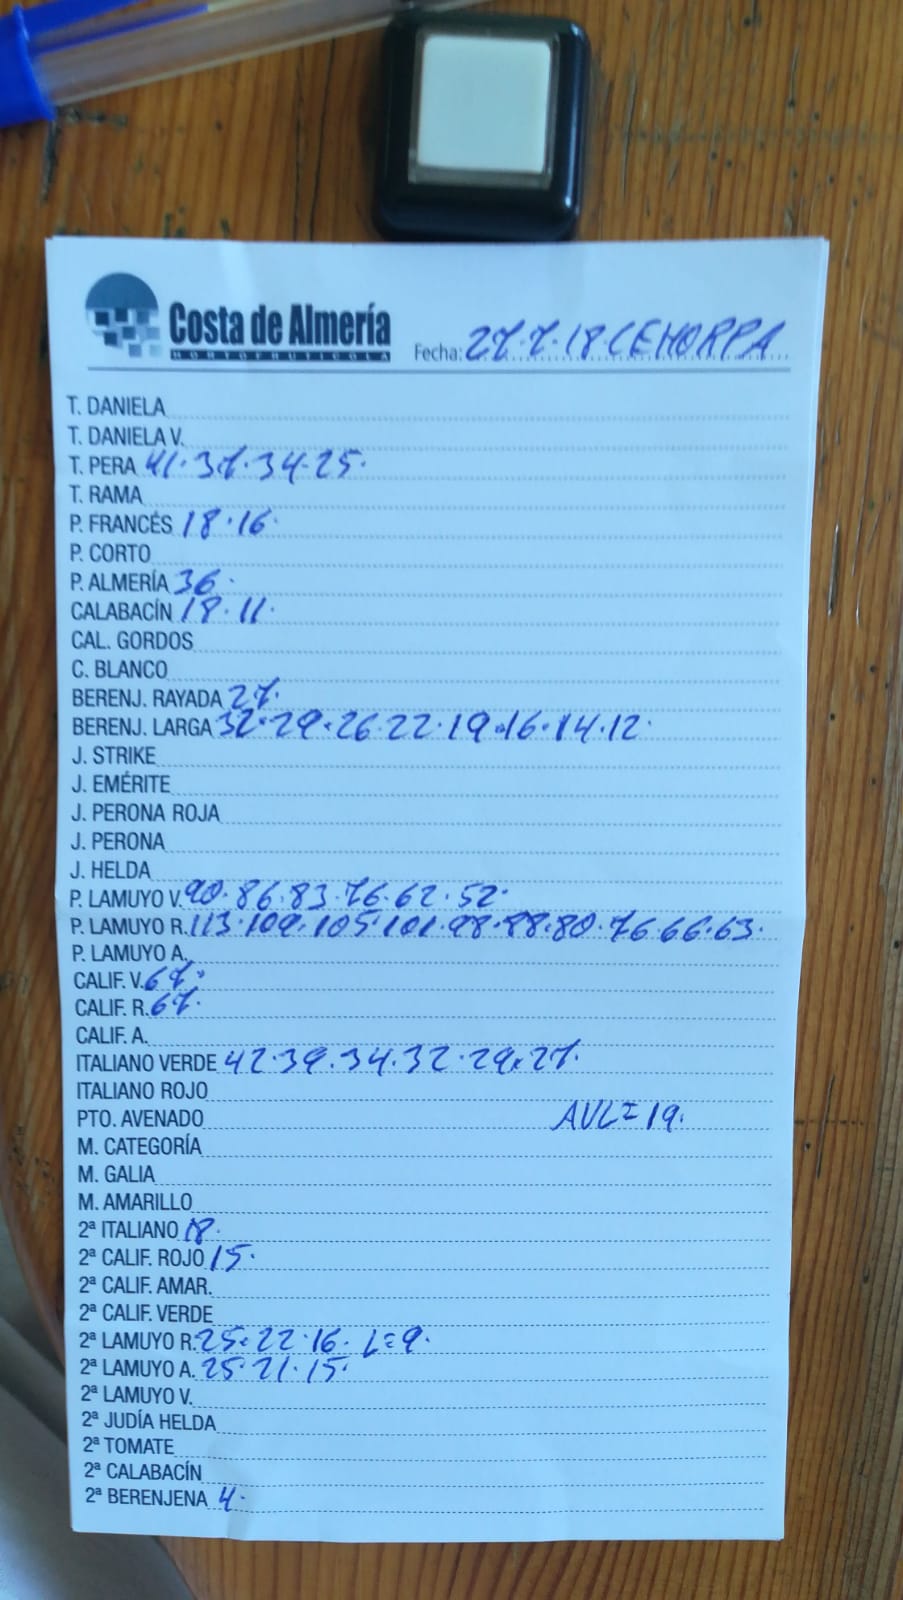 Costa de Almería
HORTOFRUTICOLA
Fecha: 27.7.18 CEHORPA
T. DANIELA
T. DANIELA V.
T. PERA 41.37.34.25.
T. RAMA
P. FRANCÉS 18.16.
P. CORTO
P. ALMERÍA 36.
CALABACÍN 18.11.
CAL. GORDOS
C. BLANCO
BERENJ. RAYADA 27.
BERENJ. LARGA 32.29.26.22.19.16.14.12.
J. STRIKE
J. EMÉRITE
J. PERONA ROJA
J. PERONA
J. HELDA
P. LAMUYO V. 90.86.83.76.62.52.
P. LAMUYO R. 113.109.105.101.98.88.80.76.66.63.
P. LAMUYO A.
CALIF. V. 67.
CALIF. R. 67.
CALIF. A.
ITALIANO VERDE 42.39.34.32.29.27.
ITALIANO ROJO
PTO. AVENADO AVL=19.
M. CATEGORÍA
M. GALIA
M. AMARILLO
2ª ITALIANO 18.
2ª CALIF. ROJO 15.
2ª CALIF. AMAR.
2ª CALIF. VERDE
2ª LAMUYO R. 25.22.16. L=9.
2ª LAMUYO A. 25.21.15.
2ª LAMUYO V.
2ª JUDÍA HELDA
2ª TOMATE
2ª CALABACÍN
2ª BERENJENA 4.